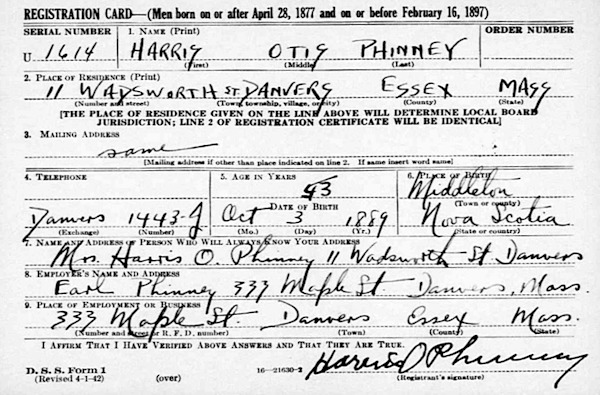 REGISTRATION CARD—(Men born on or after April 28, 1877 and on or before February 16, 1897)
SERIAL NUMBER 1. NAME (Print) ORDER NUMBER
U 1614 HARRIS OTIS PHINNEY
(First) (Middle) (Last)
2. PLACE OF RESIDENCE (Print)
11 WADSWORTH ST. DANVERS ESSEX MASS
(Number and street) (Town, township, village, or city) (County) (State)
[THE PLACE OF RESIDENCE GIVEN ON THE LINE ABOVE WILL DETERMINE LOCAL BOARD
JURISDICTION; LINE 2 OF REGISTRATION CERTIFICATE WILL BE IDENTICAL]
3. MAILING ADDRESS
same
[Mailing address if other than place indicated on line 2. If same insert word same]
4. TELEPHONE 5. AGE IN YEARS 6. PLACE OF BIRTH
Middleton
DATE OF BIRTH (Town or county)
Danvers 1443-J Oct 3 1889 Nova Scotia
(Exchange) (Number) (Mo.) (Day) (Yr.) (State or country)
7. NAME AND ADDRESS OF PERSON WHO WILL ALWAYS KNOW YOUR ADDRESS
Mrs. Harris O. Phinney 11 Wadsworth St Danvers
8. EMPLOYER'S NAME AND ADDRESS
Earl Phinney 333 Maple St. Danvers, Mass.
9. PLACE OF EMPLOYMENT OR BUSINESS
333 Maple St. Danvers Essex Mass.
(Number and street or R. F. D. number) (Town) (County) (State)
I AFFIRM THAT I HAVE VERIFIED ABOVE ANSWERS AND THAT THEY ARE TRUE.
Harris O Phinney
D. S. S. Form 1
(Revised 4-1-42) (over) 16—21630-2 (Registrant's signature)